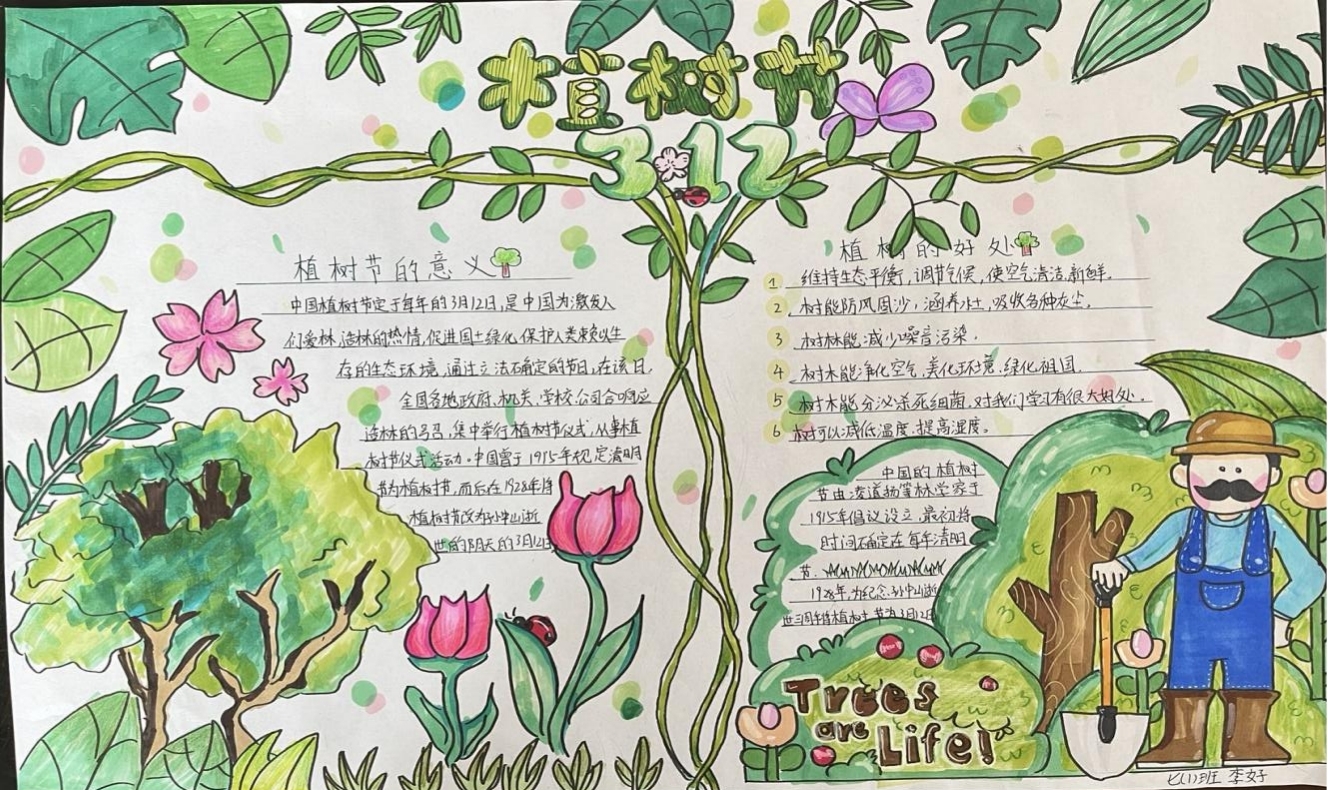 植树节
3.12
植树节的意义
中国植树节定于每年的3月12日,是中国为激发人
们爱林、造林的热情,促进国土绿化,保护人类赖以生
存的生态环境,通过立法确定的节日,在该日,
全国各地政府、机关、学校、公司会响应
造林的号召,集中举行植树节仪式,从事植
树节仪式活动。中国曾于1915年规定清明
节为植树节,而后在1928年将
植树节改为孙中山逝
世的阴天的3月12日
植树的好处
1 维持生态平衡,调节气候,使空气清洁、新鲜。
2 树能防风固沙,涵养水土,吸收各种灰尘。
3 树林能减少噪音污染。
4 树木能净化空气、美化环境、绿化祖国。
5 树木能分泌杀死细菌,对我们学习有很大好处。
6 树可以减低温度、提高湿度。
中国的植树
节由凌道扬等林学家于
1915年倡议设立,最初将
时间确定在每年清明
节.
1928年,为纪念孙中山逝
世三周年将植树节为3月12日
Trees
are Life!
七(1)班 李好